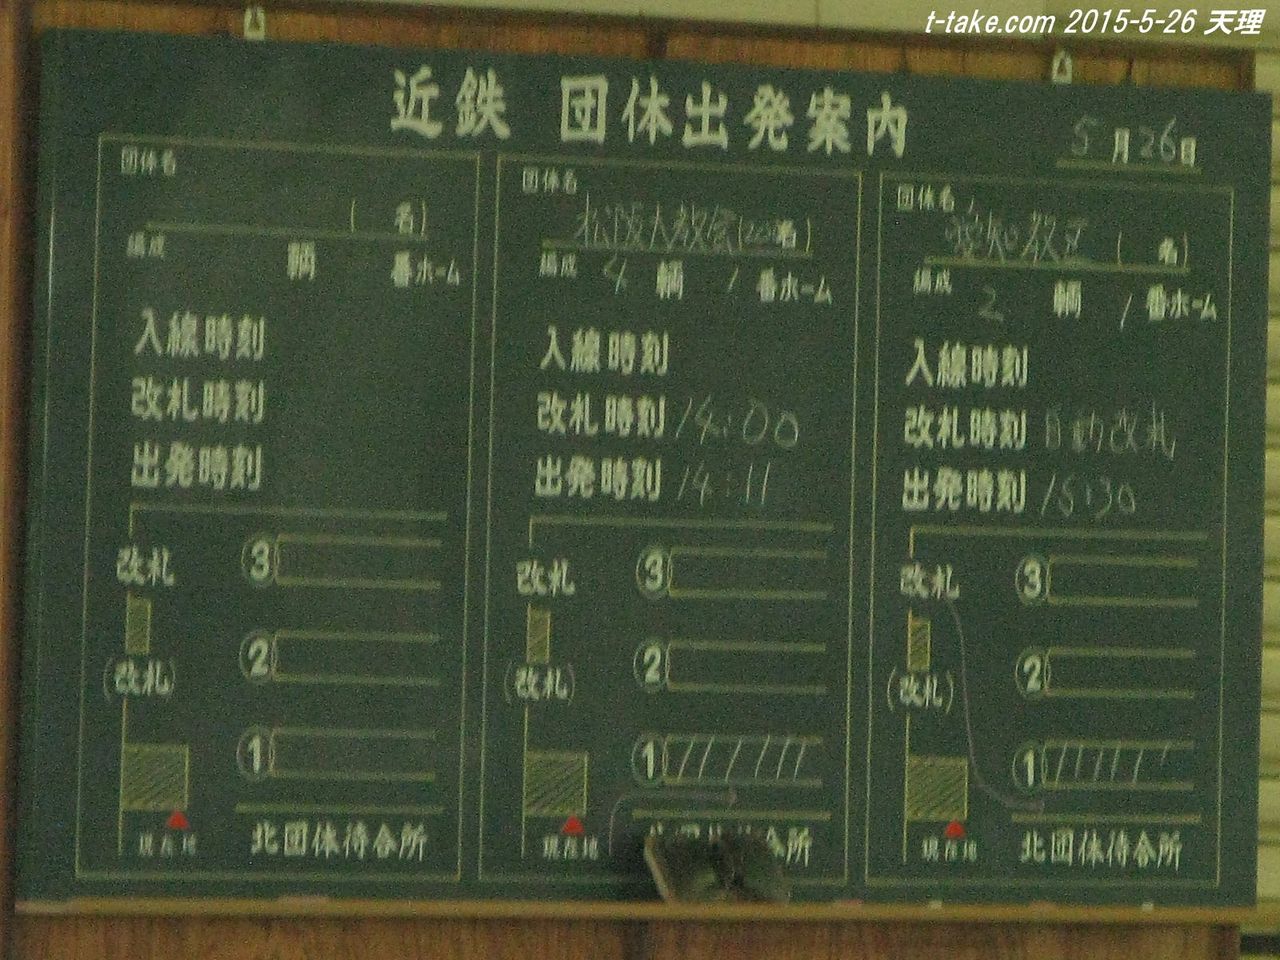 t-take.com 2015-5-26 天理
近鉄 団体出発案内
5月26日
団体名
( 名)
編成 輌 番ホーム
入線時刻
改札時刻
出発時刻
改札
(改札)
③
②
①
現在地
北団体待合所
団体名
松阪大教会(200名)
編成 4 輌 1 番ホーム
入線時刻
改札時刻 14:00
出発時刻 14:11
改札
(改札)
③
②
①
現在地
北団体待合所
団体名
愛知教区 ( 名)
編成 2 輌 1 番ホーム
入線時刻
改札時刻 自動改札
出発時刻 15:30
改札
(改札)
③
②
①
現在地
北団体待合所